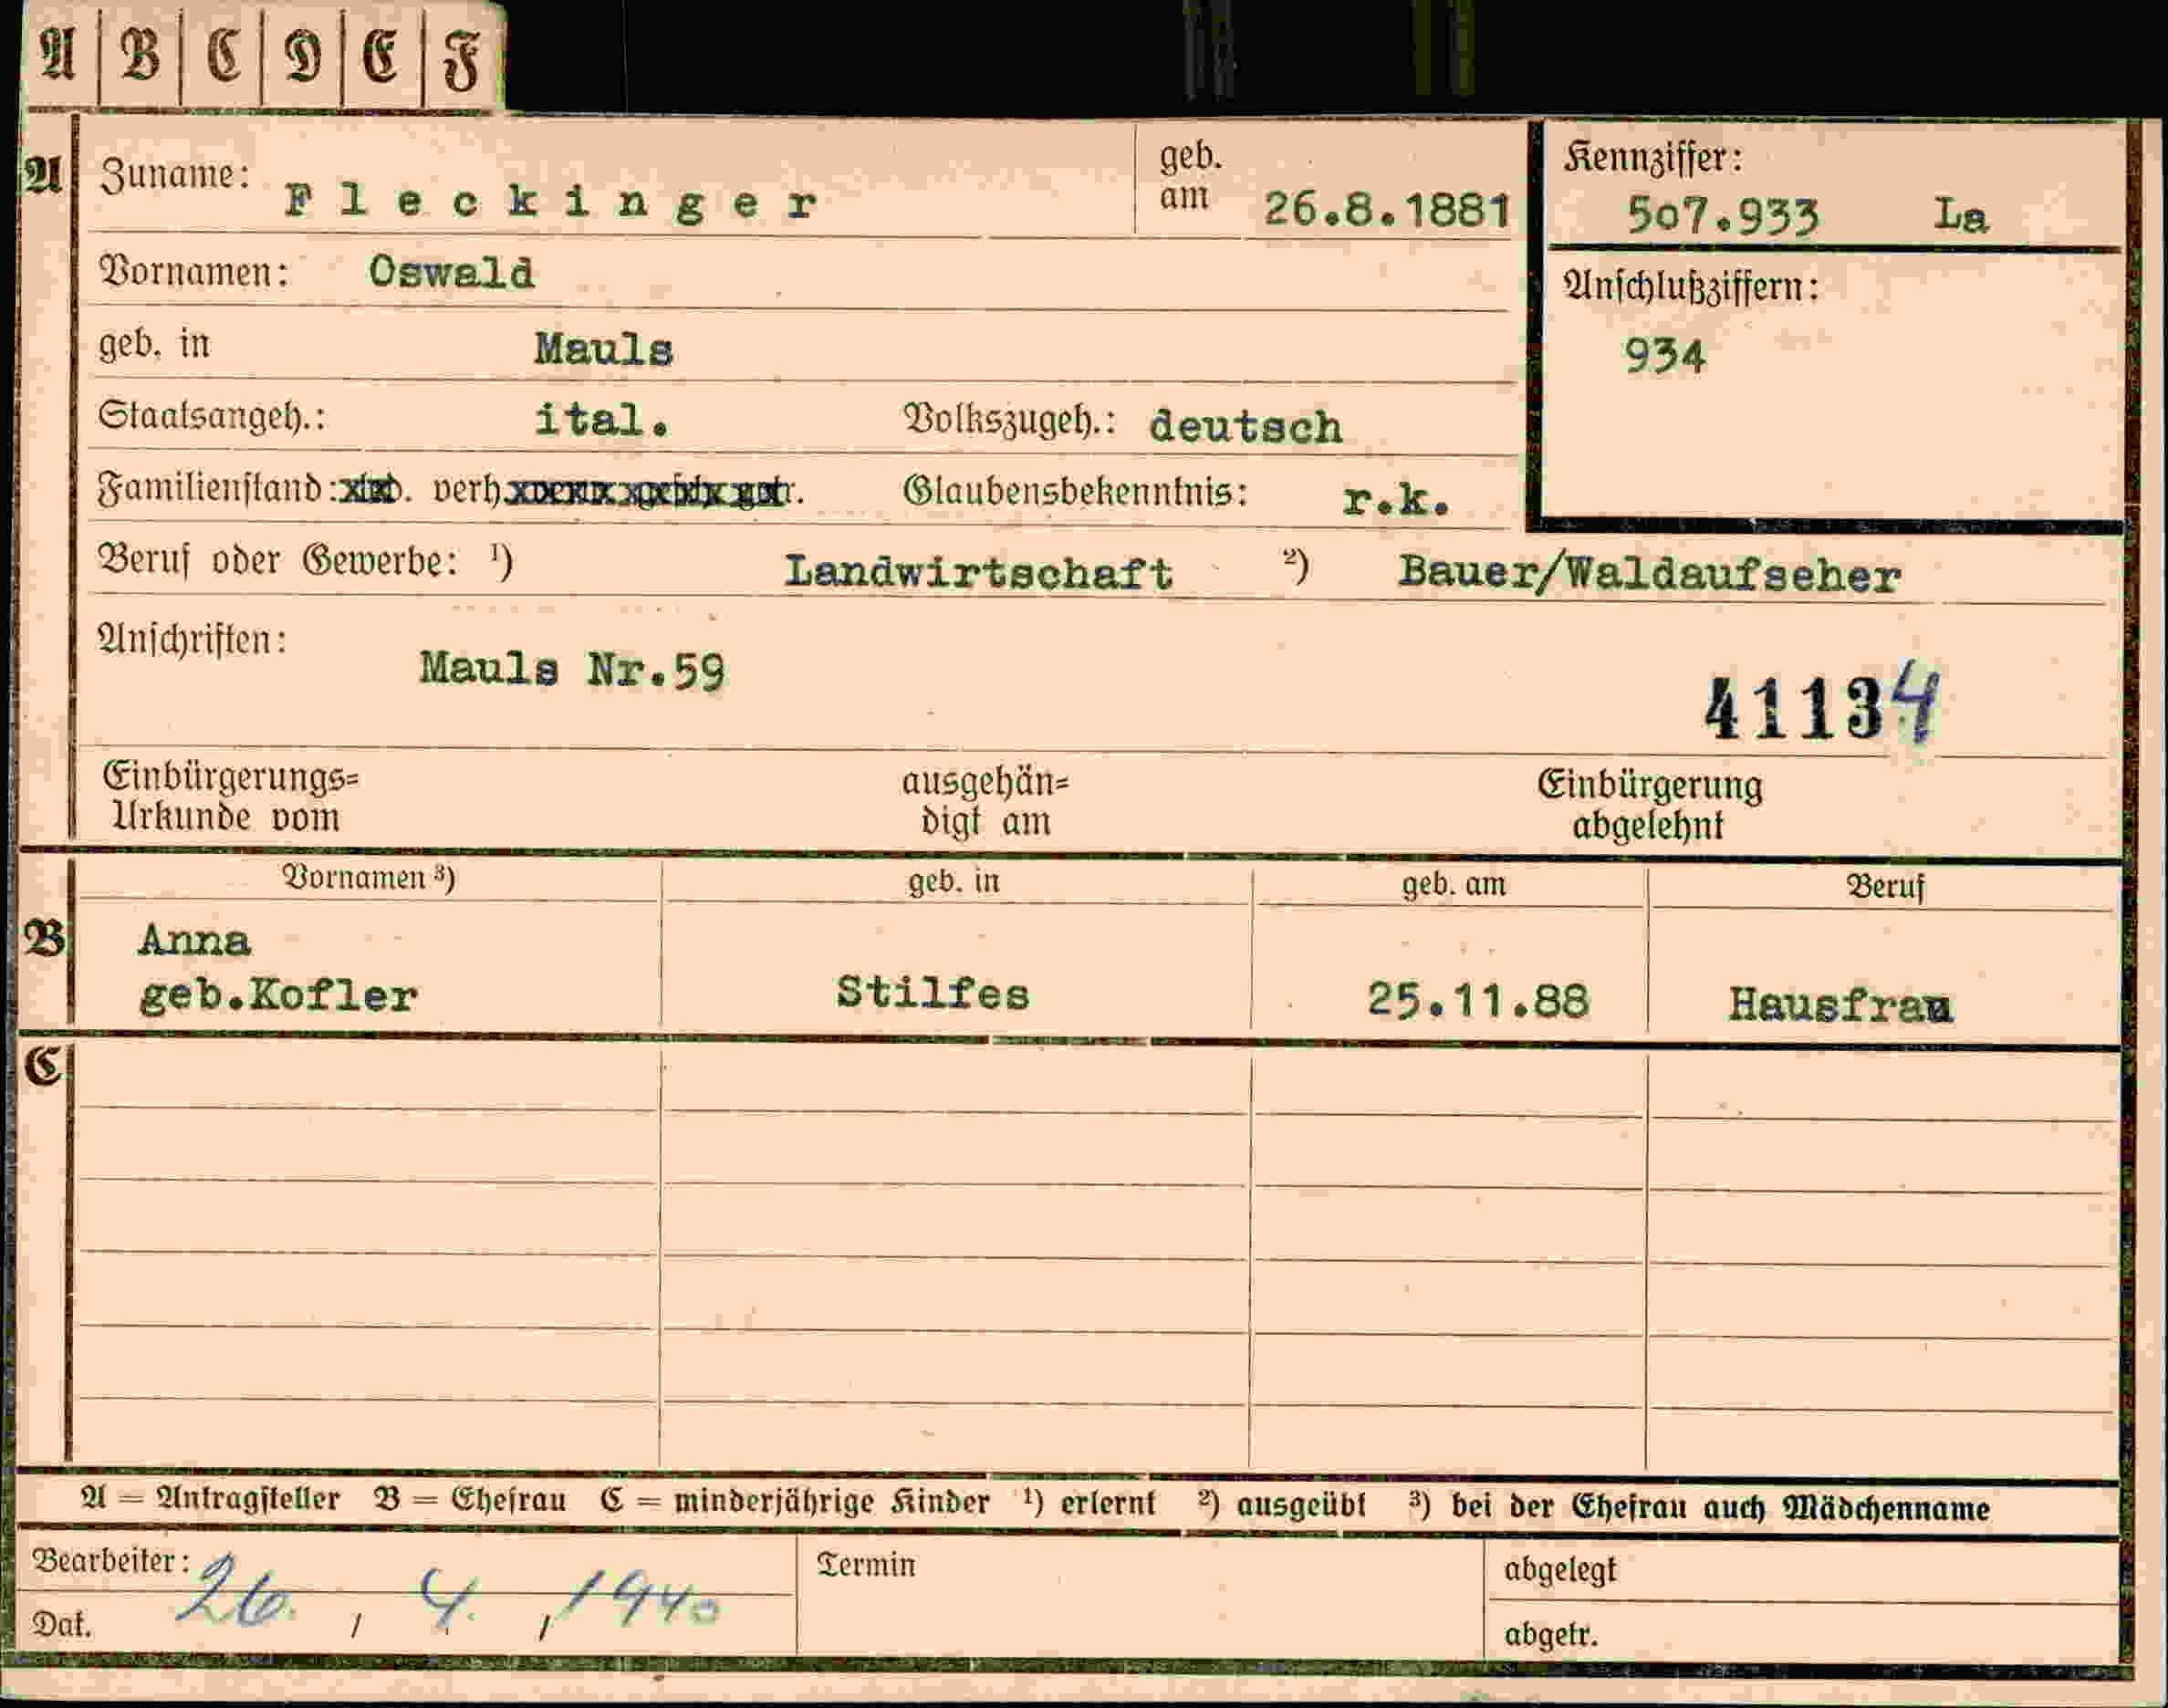 A B C D E F
A Zuname: Fleckinger geb. am 26.8.1881
Kennziffer: 507.933 La
Vornamen: Oswald
Anschlußziffern: 934
geb. in Mauls
Staatsangeh.: ital. Volkszugeh.: deutsch
Familienstand: verh. Glaubensbekenntnis: r.k.
Beruf oder Gewerbe: ¹) Landwirtschaft ²) Bauer/Waldaufseher
Anschriften: Mauls Nr.59
41134
Einbürgerungs= Urkunde vom ausgehän= digt am Einbürgerung abgelehnt
Vornamen ³) geb. in geb. am Beruf
B Anna
geb.Kofler Stilfes 25.11.88 Hausfrau
C
A = Antragsteller B = Ehefrau C = minderjährige Kinder ¹) erlernt ²) ausgeübt ³) bei der Ehefrau auch Mädchenname
Bearbeiter: Termin abgelegt
Dat. 26. / 4. / 1940 abgetr.